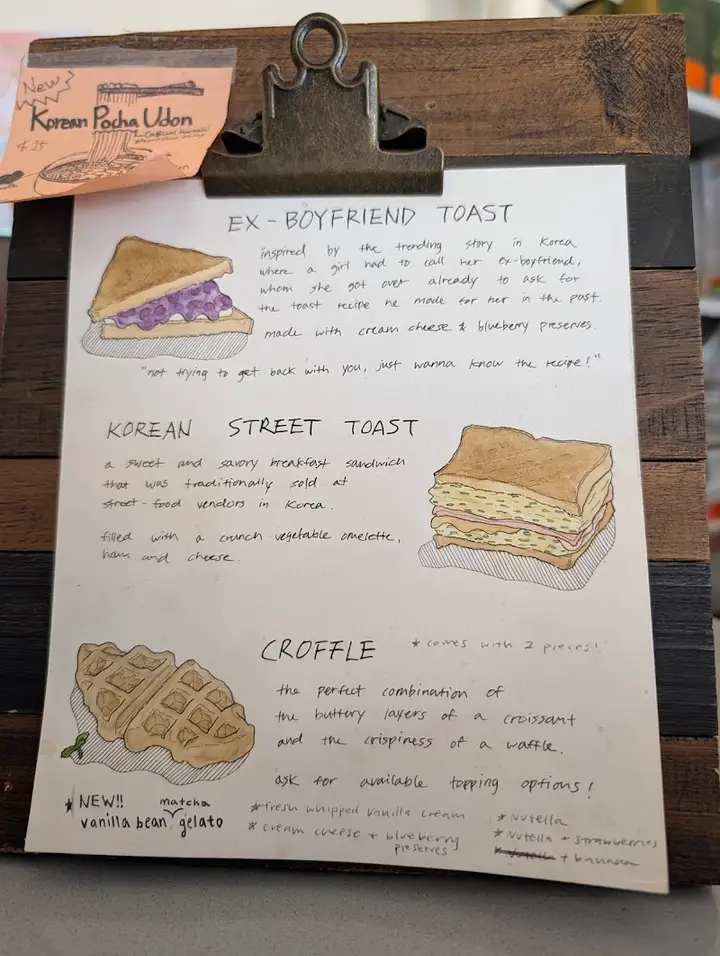 New
Korean Pocha Udon
EX-BOYFRIEND TOAST
inspired by the trending story in Korea
where a girl had to call her ex-boyfriend,
whom she got over already to ask for
the toast recipe he made for her in the past.
made with cream cheese & blueberry preserves.
"not trying to get back with you, just wanna know the recipe!"
KOREAN STREET TOAST
a sweet and savory breakfast sandwich
that was traditionally sold at
street-food vendors in Korea.
filled with a crunch vegetable omelette,
ham and cheese.
CROFFLE *comes with 2 pieces!
the perfect combination of
the buttery layers of a croissant
and the crispiness of a waffle.
ask for available topping options!
*NEW!! matcha
vanilla bean gelato
*fresh whipped vanilla cream
*cream cheese + blueberry
preserves
*Nutella
*Nutella + strawberries
*Nutella + banana